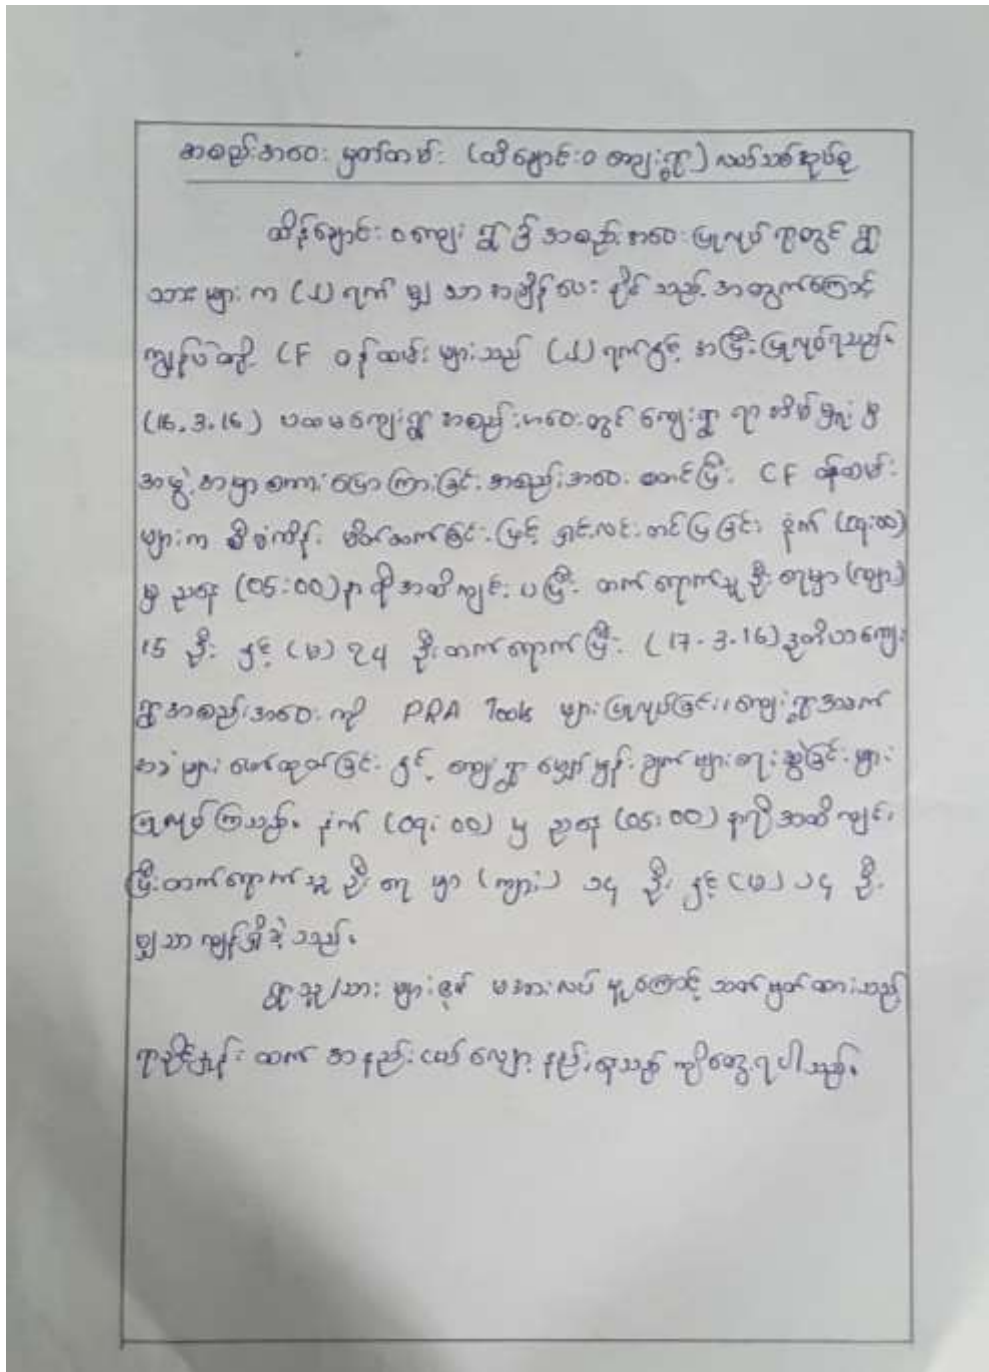 အစည်းအဝေး မှတ်တမ်း (ထိန်ချောင်းဝ ကျေးရွာ) လယ်သစ်အုပ်စု
ထိန်ချောင်း ဝ ကျေး ရွာ ၌ အစည်း အဝေး ပြုလုပ် ရာတွင် ရွာ
သား များ က (၂) ရက် မျှ သာ အချိန် ပေး နိုင် သည့် အတွက်ကြောင့်
ကျွန်ုပ်တို့ CF ဝန်ထမ်း များသည် (၂) ရက်နှင့် အပြီး ပြုလုပ်ရသည်။
(16.3.16) ပထမကျေးရွာ အစည်းအဝေးတွင် ကျေးရွာ ရာအိမ်မှူး မှ
အဖွဲ့အမှာစကား ပြောကြားခြင်း အစည်းအဝေး စတင်ပြီး CF ဝန်ထမ်း
များက စီမံကိန်း မိတ်ဆက်ခြင်း ဖြင့် ရှင်းလင်း တင်ပြခြင်း နံနက် (09:00)
မှ ညနေ (05:00) နာရီအထိ ကျင်းပပြီး တက်ရောက်သူ ဦးရေမှာ (ကျား)
15 ဦး နှင့် (မ) 24 ဦး တက်ရောက်ပြီး (17.3.16) ဒုတိယကျေး
ရွာအစည်းအဝေး ကို PRA Tools များ ပြုလုပ်ခြင်း၊ ကျေးရွာအခက်
အခဲများ ဖော်ထုတ်ခြင်း နှင့် ကျေးရွာ မျှော်မှန်း ချက်များ ရေးဆွဲခြင်း များ
ပြုလုပ်ကြသည်။ နံနက် (09:00) မှ ညနေ (05:00) နာရီအထိ ကျင်းပ
ပြီး တက်ရောက်သူ ဦး ရေ မှာ (ကျား) ၁၄ ဦး နှင့် (မ) ၁၄ ဦး
မျှသာ ကျန်ရှိခဲ့သည်။
ရွာသူ/သား များ မအားလပ် မှုကြောင့် သတ်မှတ်ထားသည့်
ရာခိုင်နှုန်း ထက် အနည်းငယ် လျော့နည်းရသည် ကိုတွေ့ရပါသည်။